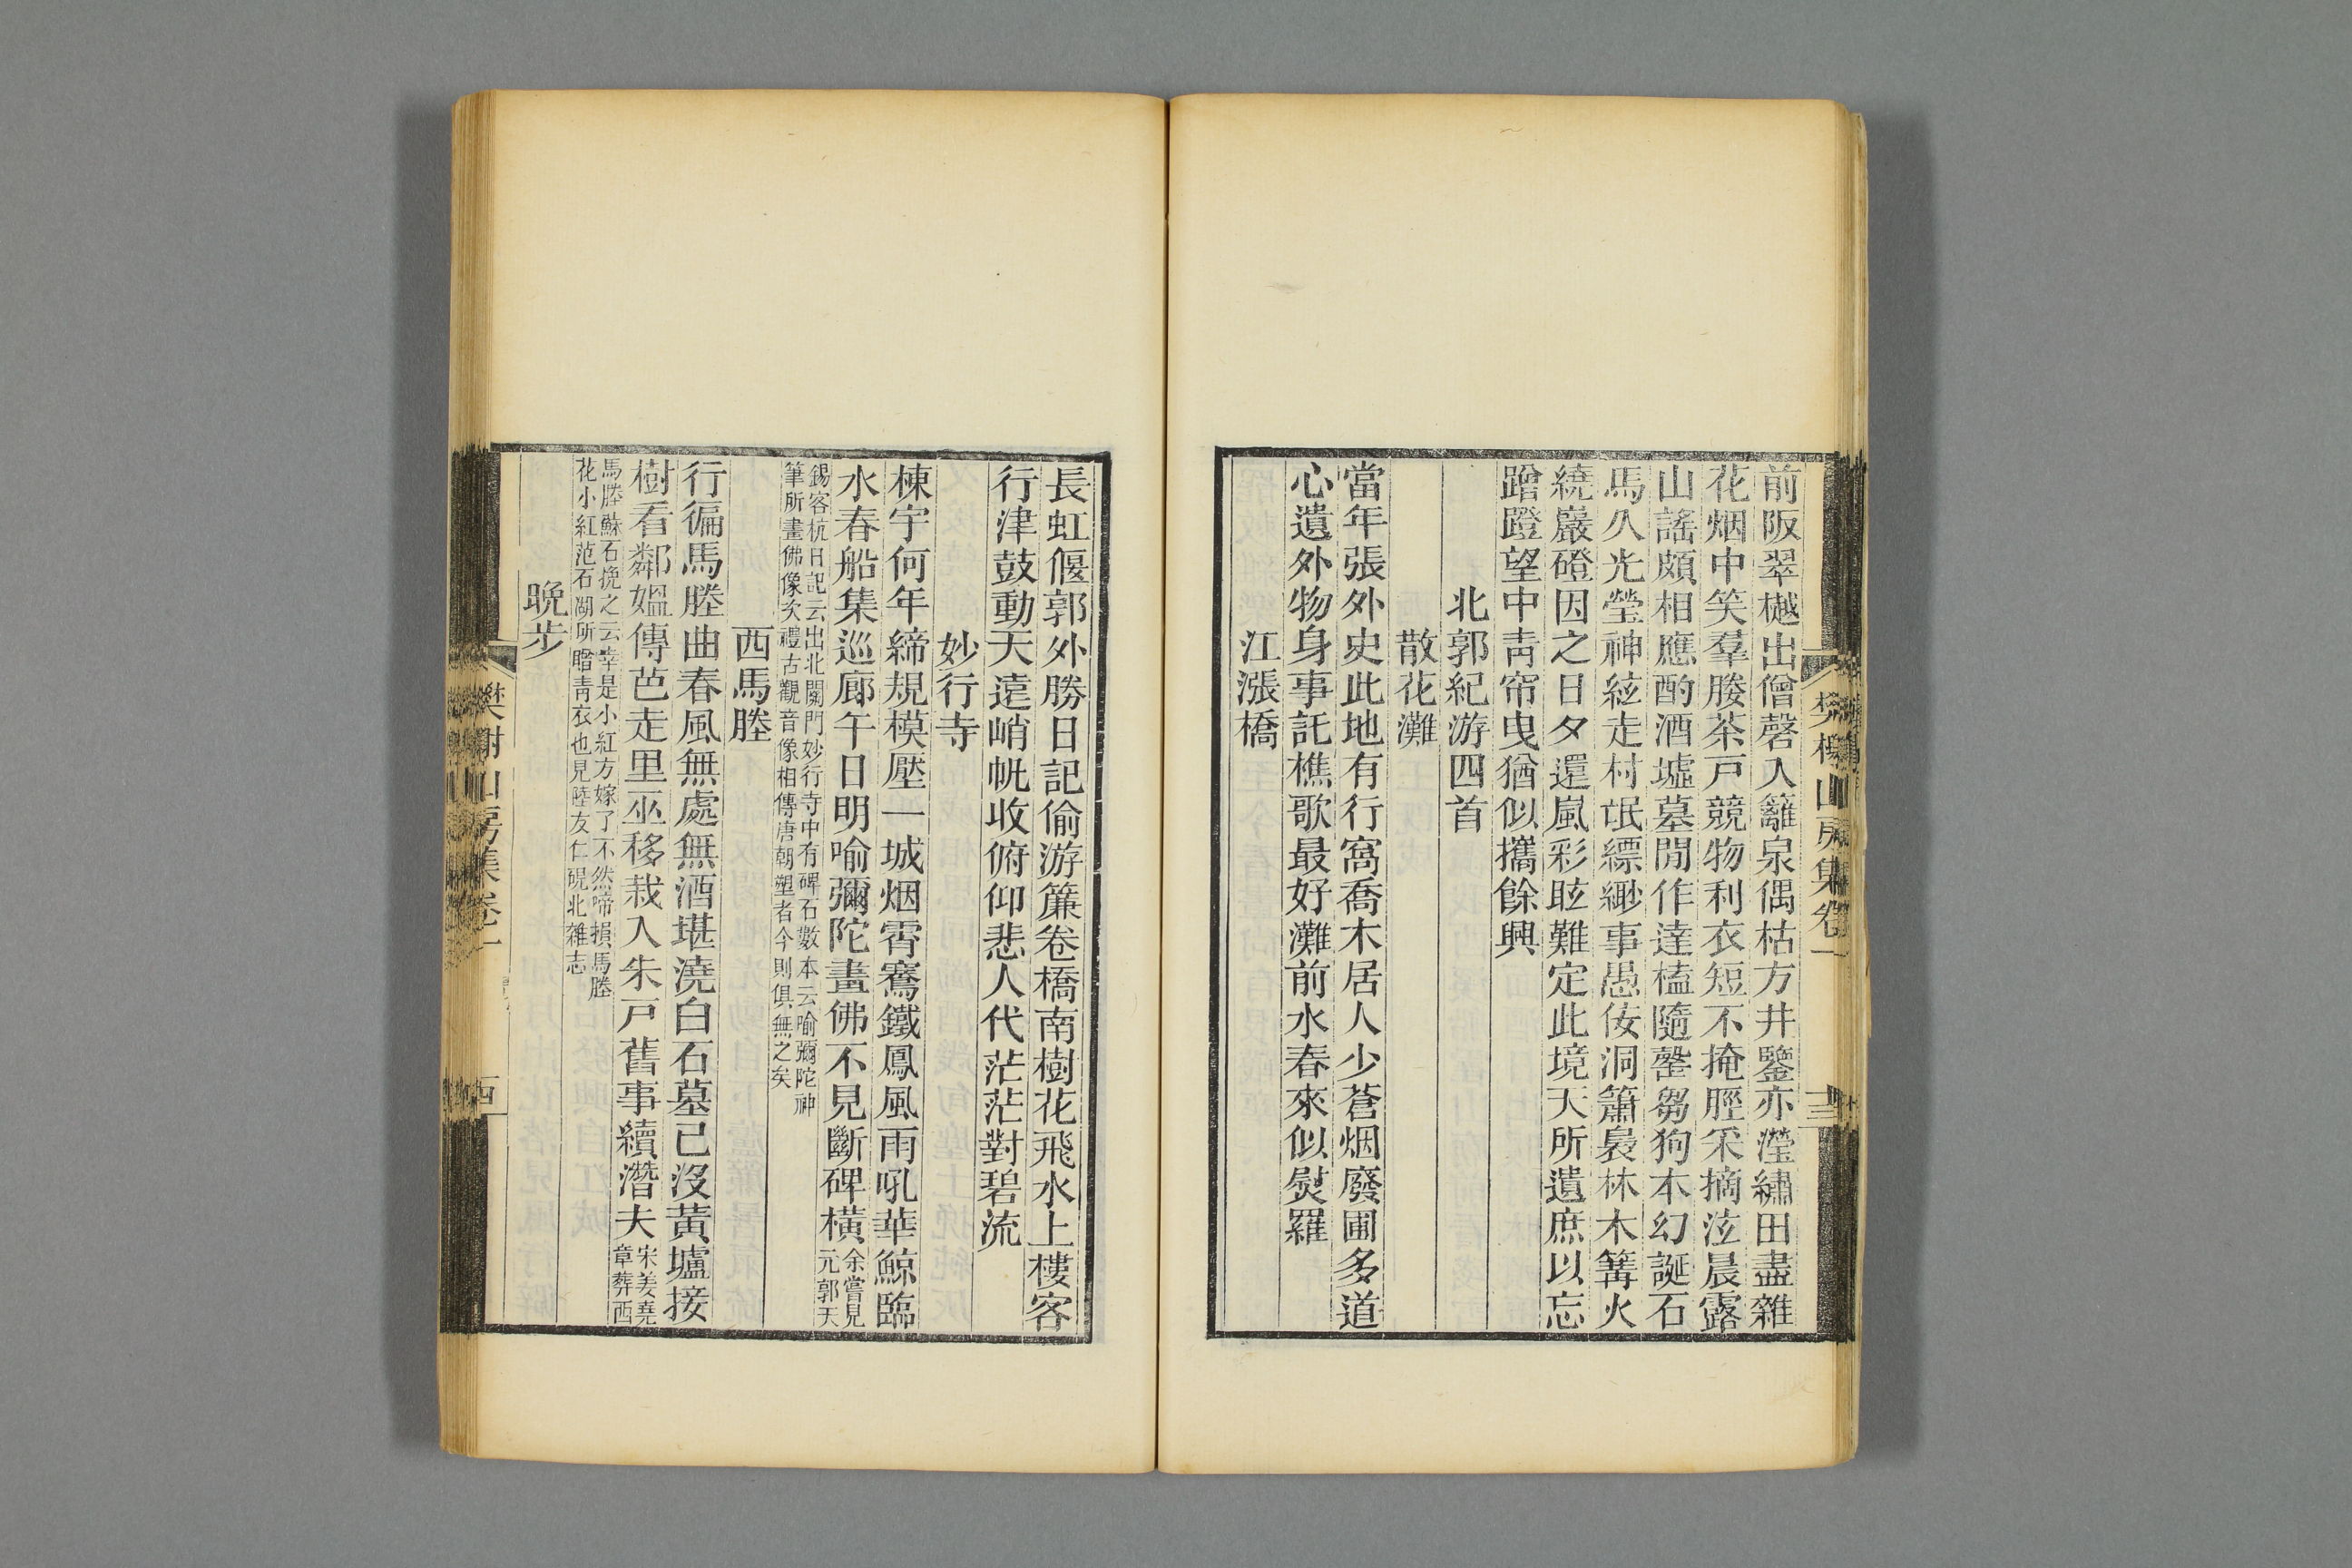 前阪翠樾出僧磬入籬泉偶枯方井鑒亦瀅繡田盡雜
花烟中笑羣媵茶戸競物利衣短不掩脛采摘泫晨露
山謠頗相應酌酒墟墓閒作達榼隨罄芻狗本幻誕石
馬久光瑩神絃走村氓縹緲事愚侫洞簫裊林木篝火
繞巖磴因之日夕還嵐彩眩難定此境天所遺庶以忘
蹭蹬望中靑帘曳猶似攜餘興
北郭紀游四首
散花灘
當年張外史此地有行窩喬木居人少蒼烟廢圃多道
心遺外物身事託樵歌最好灘前水春來似熨羅
江漲橋
長虹偃郭外勝日記偷游簾卷橋南樹花飛水上樓客
行津鼓動天遠峭帆收俯仰悲人代茫茫對碧流
妙行寺
棟宇何年締規模壓一城烟霄騫鐵鳳風雨吼華鯨臨
水春船集巡廊午日明喻彌陀畫佛不見斷碑橫余嘗見
元郭天
錫客杭日記云出北關門妙行寺中有碑石數本云喻彌陀神
筆所畫佛像次禮古觀音像相傳唐朝塑者今則俱無之矣
西馬塍
行徧馬塍曲春風無處無酒堪澆白石墓已沒黃壚接
樹看鄰媼傳芭走里巫移栽入朱戸舊事續潛夫宋姜堯
章葬西
馬塍蘇石挽之云幸是小紅方嫁了不然啼損馬塍
花小紅范石湖所贈靑衣也見陸友仁硯北雜志
晩步
樊榭山房集卷一